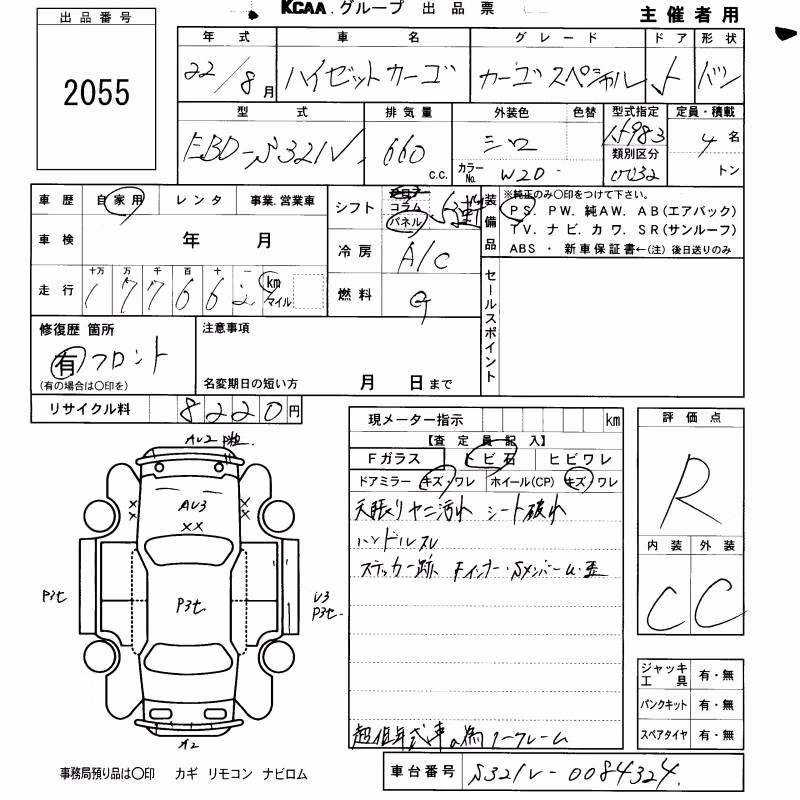 KCAA.グループ 出品票
主催者用
出品番号
2055
年式 車名 グレード ドア 形状
22/8月 ハイゼットカーゴ カーゴスペシャル 5 バン
型式 排気量 外装色 色替 型式指定 定員・積載
EBD-S321V 660 c.c. シロ 15983 4名
カラーNo. W20 類別区分 0032 トン
車歴 自家用 レンタ 事業.営業車
シフト コラム パネル 5速
装備品
※純正のみ〇印をつけて下さい。
PS. PW. 純AW. AB(エアバック)
TV. ナビ. カワ. SR(サンルーフ)
ABS・新車保証書←(注)後日送りのみ
車検 年 月
冷房 A/C
走行 十万 万 千 百 十 一 km マイル
177662
燃料 G
セールスポイント
修復歴 箇所
有 フロント
(有の場合は〇印を)
注意事項
名変期日の短い方 月 日まで
リサイクル料 8220円
現メーター指示 km
【査定員記入】
Fガラス トビ石 ヒビワレ
ドアミラー キズ・ワレ ホイール(CP) キズ・ワレ
天張りヤニ汚れ シート破れ
ハンドルスレ
ステッカー跡 Fインナー・Sメンバー
超低年式車の為ノークレーム
評価点
R
内装 外装
C C
AU2
AU3
××
P3セ
P3セ
U3
P3セ
A2
ジャッキ工具 有・無
パンクキット 有・無
スペアタイヤ 有・無
事務局預り品は〇印 カギ リモコン ナビロム
車台番号 S321V-0084324